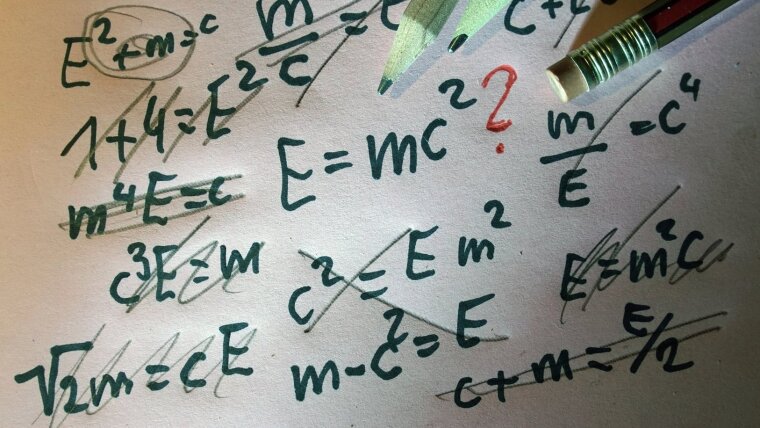 E²+m=c
m/c=
c+
1+4=E²
E=mc²?
m/E=c⁴
m⁴E=c
c³E=m
c²=Em²
E=m²c
√2m=cE
m-c²=E
c+m=E/2